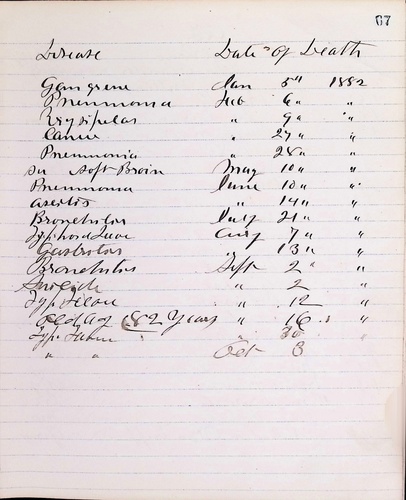 67
Disease Date of Death
Gangrene Jan 5" 1882
Pneumonia Feb 6" "
Erysipelas " 9" "
Cancer " 27" "
Pneumonia " 28" "
Soft Brain May 10" "
Pneumonia June 10" "
Ascites " 14" "
Bronchitis July 21" "
Typhoid Fever Aug 7" "
Gastritis " 13" "
Bronchitis Sept 2" "
Suicide " 2 "
Typ Fever " 12 "
Old Age (82 Years " 16 "
Typ. Fever 30 "
" " Oct 3 "